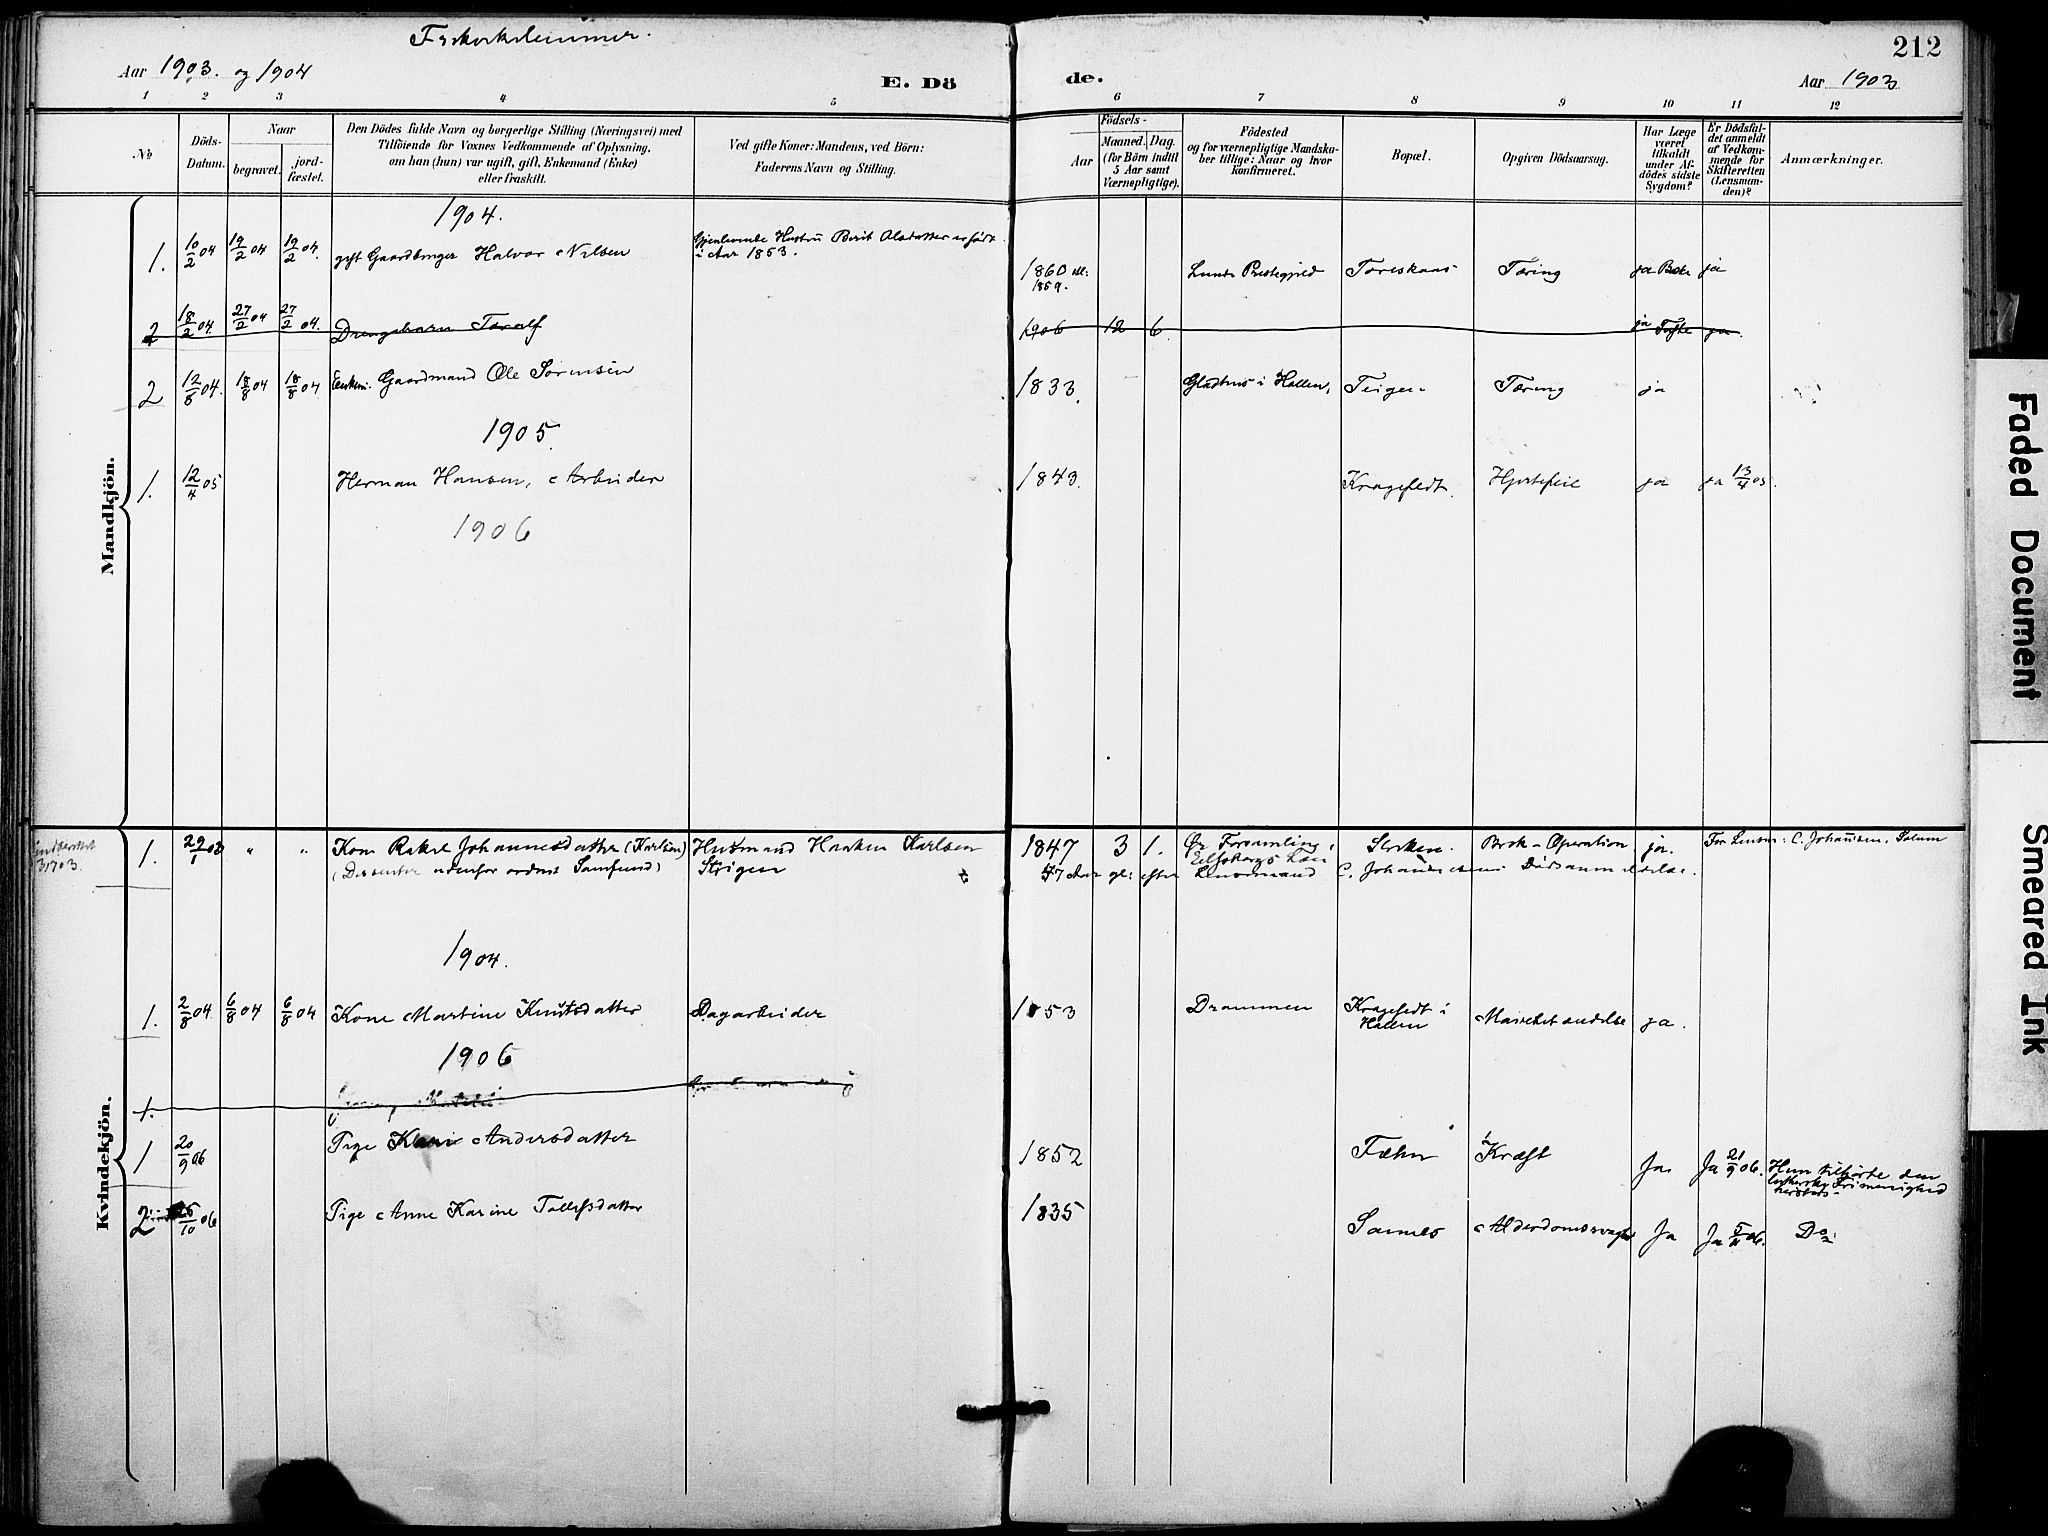 Aar 1903. og 1904
E. Dö
de.
Aar 1903
212
1 2 3 4 5 6 7 8 9 10 11 12
No
Döds-
Datum.
Naar
begravet.
jord-
fæstet.
Den Dödes fulde Navn og borgerlige Stilling (Næringsvei) med
Tilföiende for Voxnes Vedkommende af Oplysning,
om han (hun) var ugift, gift, Enkemand (Enke)
eller fraskilt.
Ved gifte Koner: Mandens, ved Börn:
Faderens Navn og Stilling.
Födsels-
Aar
Maaned. Dag.
(for Börn indtil
5 Aar samt
Værnepligtige).
Födested
og for værnepligtige Mandska-
ber tillige: Naar og hvor
konfirmeret.
Bopæl.
Opgiven Dödsaarsag.
Har Læge
været
tilkaldt
under Af-
dödes sidste
Sygdom?
Er Dödsfal-
det anmeldt
af Vedkom-
mende for
Skifteretten
(Lensman-
den)?
Anmærkninger.
Mandkjön.
1904.
1. 10/2 04 19/2 04 19/2 04. gift Gaardbruger Halvor Nilsen
Gjenlevende Hustru Berit Olsdatter er født
i Aar 1853.
1860 ell: 1859. Lunde Prestegjeld Toreskaas Tæring ja ja
2 18/2 04. 27/2 04 27/2 04. Drengebarn Toralf 1906 12 6 ja ja
2 12/8 04. 18/8 04 18/8 04 Enkem. Gaardmand Ole Sørensen 1833. i Hollen, Teigen Tæring ja
1905.
1. 12/4 05 Herman Hansen, Arbeider 1843. Kragefledt. Hjertefeil ja ja 13/4 05.
1906
Kvindekjön.
1. 29/1 03 " " Kone Rakel Johannesdatter (Karlsen)
(Dissenter udenfor ordnet Samfund)
Husmand Haaken Karlsen
Strigen
1847 3 1. Forsamling, Brok-Operation ja. C. Johansen, Solum
57 Aar gl: efter Lensmand C. Johannesens Dødsanmeldelse.
1904.
1. 2/8 04. 6/8 04 6/8 04 Kone Martine Knutsdatter Dagarbeider 1853 Drammen Kragefledt i
Hollen ja.
1906
1.
1 20/9 06 Pige Andersdatter 1852 Fæhn Kræft Ja Ja 21/9 06. Hun tilhørte den
lutherske Frimenighed
2 10 06 Pige Anne Karine Tollefsdatter 1835 Sannes Alderdomssvaghed Ja Ja 06. Do
Faded Document
Smeared Ink